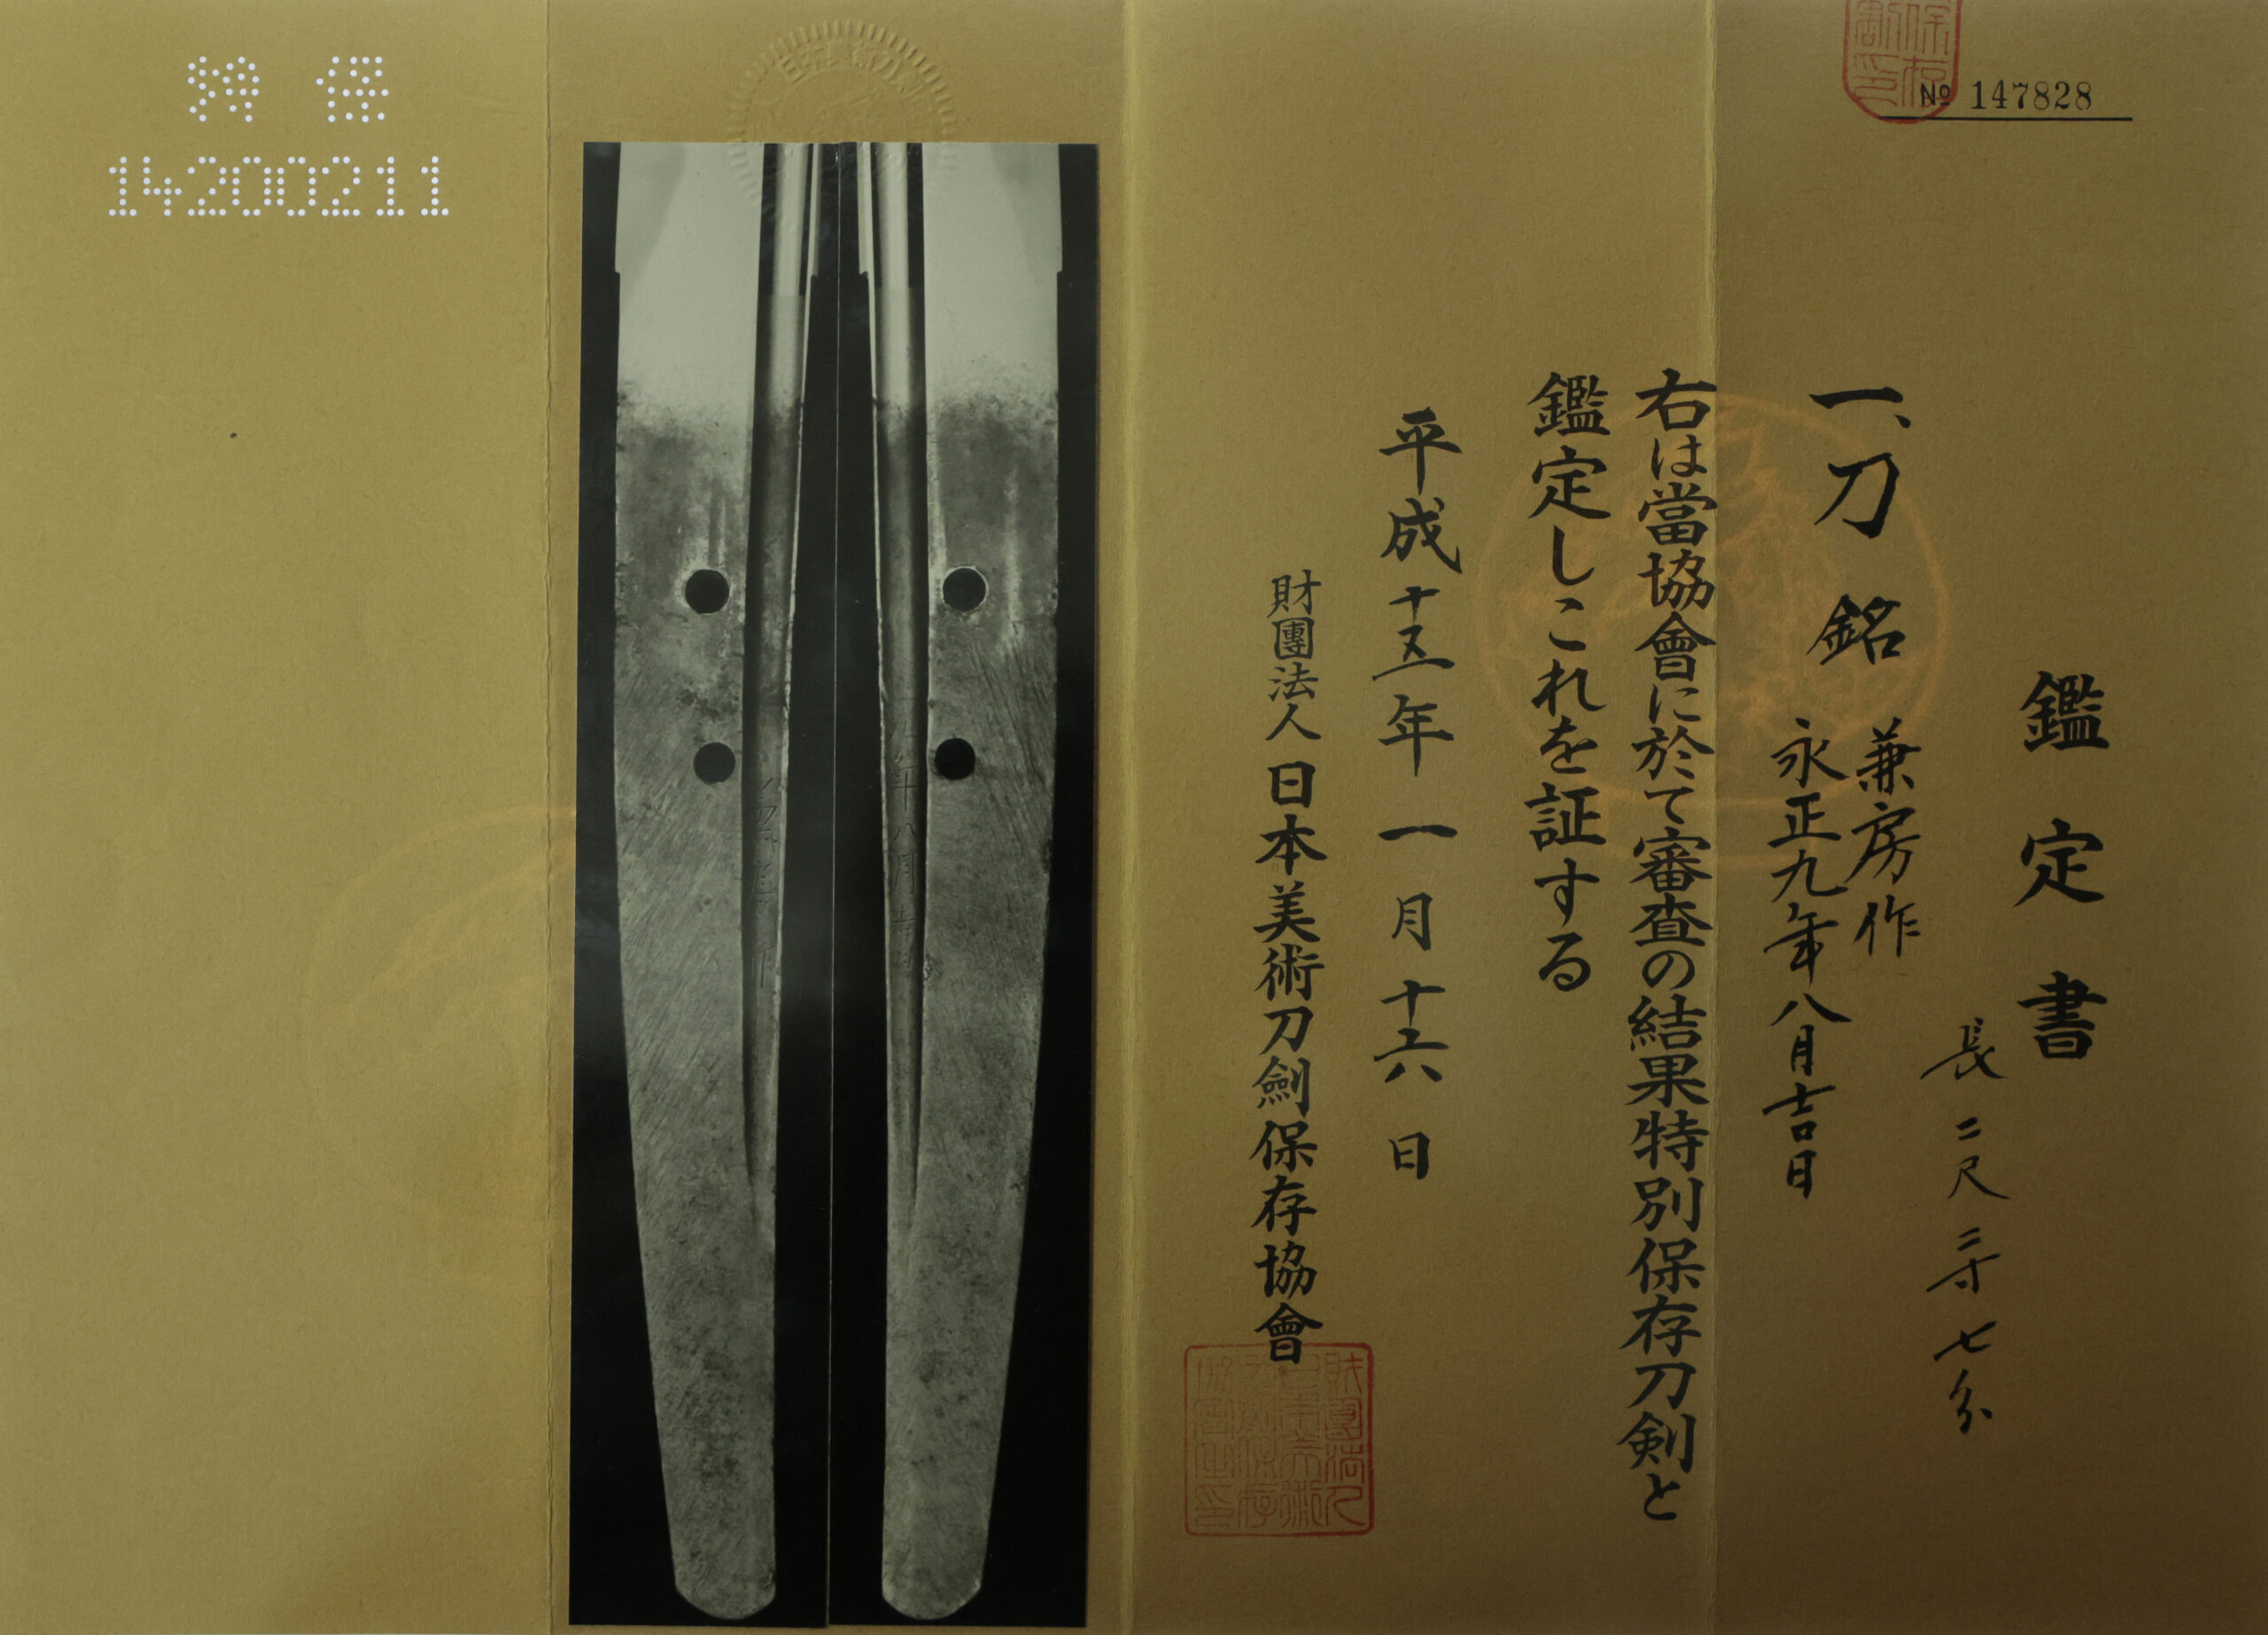 № 147828
鑑定書
長二尺三寸七分
一、刀 銘 兼房作
永正九年八月吉日
右は當協會に於て審査の結果特別保存刀剣と
鑑定しこれを証する
平成十五年一月十六日
財團法人日本美術刀劍保存協會
特保
14200211